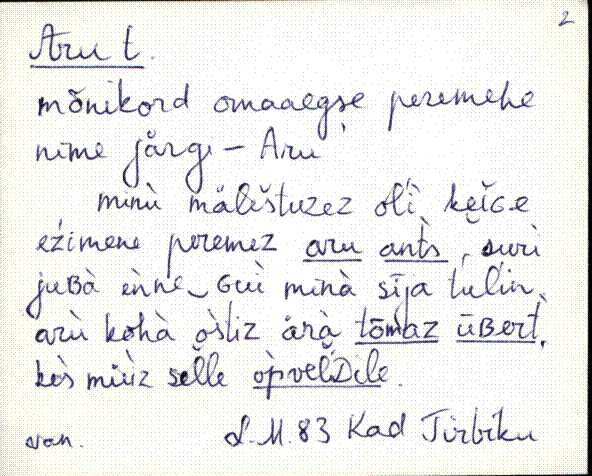 2
Aru t.
mõnikord omaaegse peremehe
nime järgi – Aru
minù mälèštuzez ol'ì keĭGe
ezimene peremez aru ants, surì
juBà ènne Guì minà sīja tulin,
arù kohà òstiz ärà tōmaz ūBert,
kès müùz selle òpvel'Dile.
van. L.M. 83 Kad Tirbiku